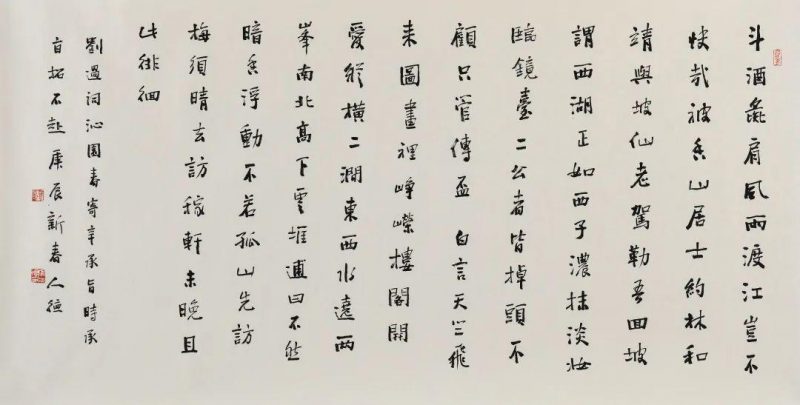 斗酒彘肩風雨渡江豈不
快哉被香山居士約林和
靖與坡仙老駕勒吾回坡
謂西湖正如西子濃抹淡妝
臨鏡臺二公者皆掉頭不
顧只管傳盃白言天竺飛
來圖畫裡崢嶸樓閣開
愛縱橫二澗東西水遶兩
峯南北高下雲堆逋曰不然
暗香浮動不若孤山先訪
梅須晴去訪稼軒未晚且
此徘徊
劉過詞沁園春寄辛承旨時承
旨招不赴庚辰新春人